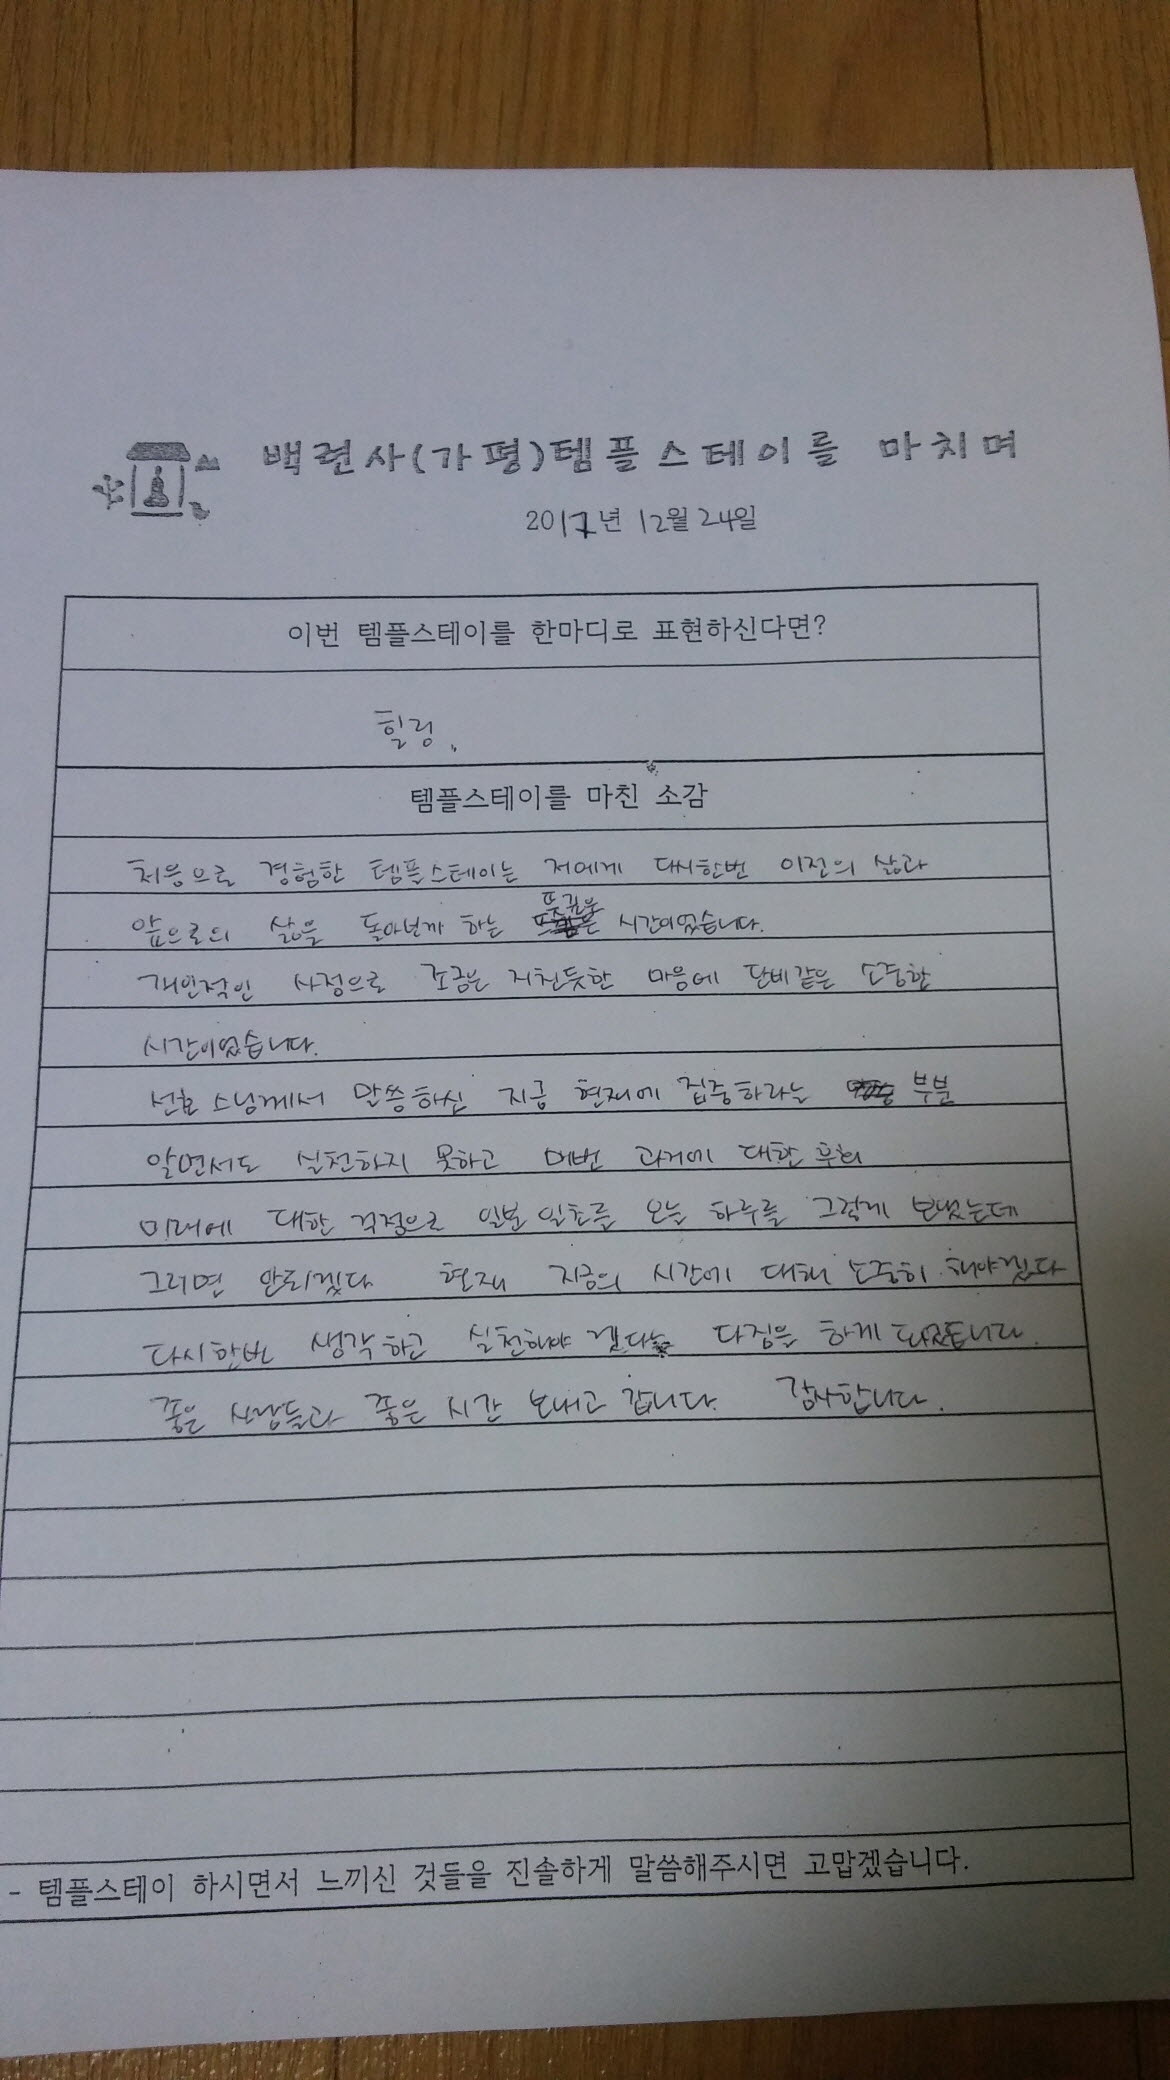 백련사(가평)템플스테이를 마치며
2017년 12월 24일
이번 템플스테이를 한마디로 표현하신다면?
힐링.
템플스테이를 마친 소감
처음으로 경험한 템플스테이는 저에게 다시한번 이전의 삶과
앞으로의 삶을 돌아볼까 하는 뜻깊은 시간이었습니다.
개인적인 사정으로 조금은 지친듯한 마음에 단비같은 소중한
시간이었습니다.
선효 스님께서 말씀하신 지금 현재에 집중하라는 부분
알면서도 실천하지 못하고 매번 과거에 대한 후회
미래에 대한 걱정으로 일분 일초를 오늘 하루를 그렇게 보냈는데
그러면 안되겠다 현재 지금의 시간에 대해 소중히 해야겠다
다시한번 생각하고 실천해야 겠다는 다짐을 하게 되었습니다.
좋은 사람들과 좋은 시간 보내고 갑니다. 감사합니다.
- 템플스테이 하시면서 느끼신 것들을 진솔하게 말씀해주시면 고맙겠습니다.